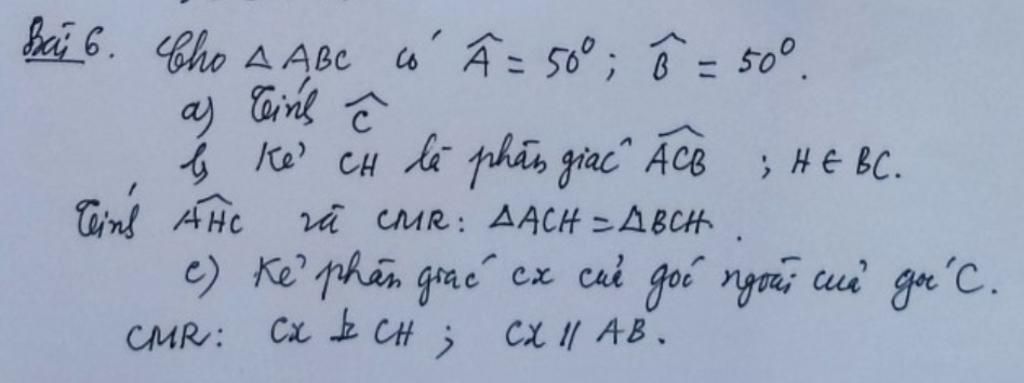 Bài 6. Cho △ABC có Â = 50°; B̂ = 50°.
a) Tính Ĉ
b) Kẻ CH là phân giác \widehat{ACB} ; H ∈ BC.
Tính \widehat{AHC} và CMR: △ACH = △BCH.
c) Kẻ phân giác Cx của góc ngoài của góc C.
CMR: Cx ⊥ CH ; Cx // AB.